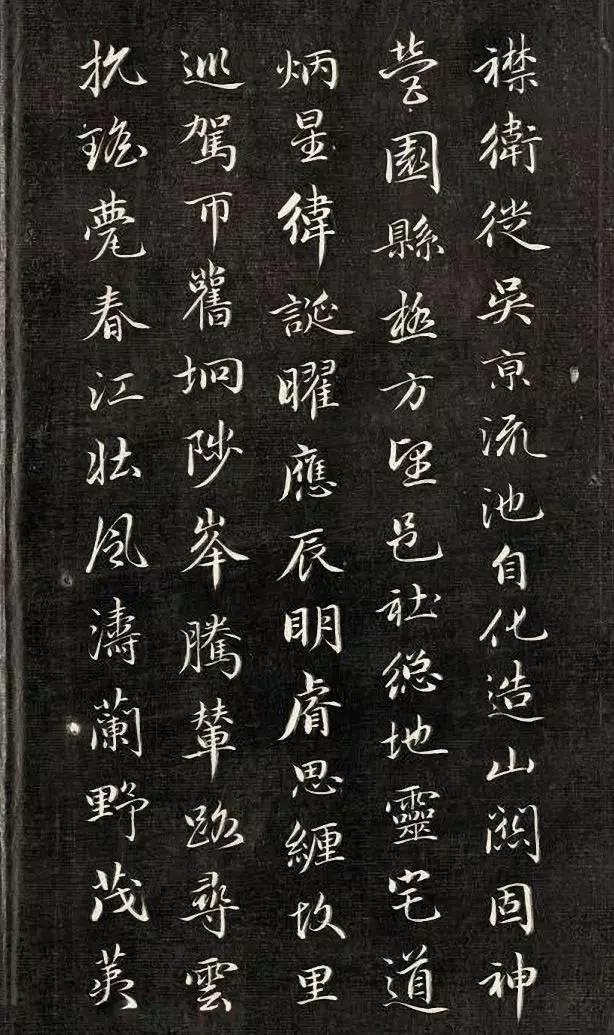 襟衛徙吳亰流池自化造山關固神
營園縣極方望邑社緫地靈宅道
炳星緯誕曜應辰明睿思纏故里
巡駕帀舊坰陟峯騰輦路尋雲
抗瑤甍春江壯風濤蘭野茂荑